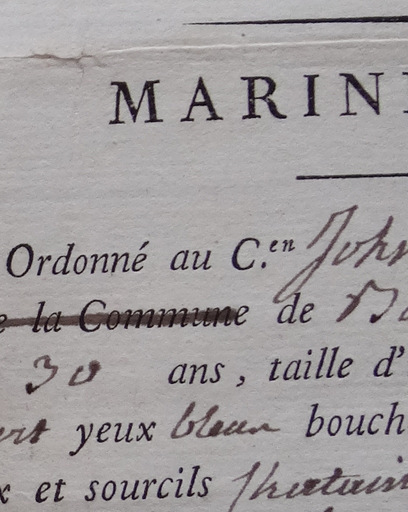 MARIN
Ordonné au C.en John
la Commune de
30 ans, taille d'
yeux bleux bouch
et sourcils